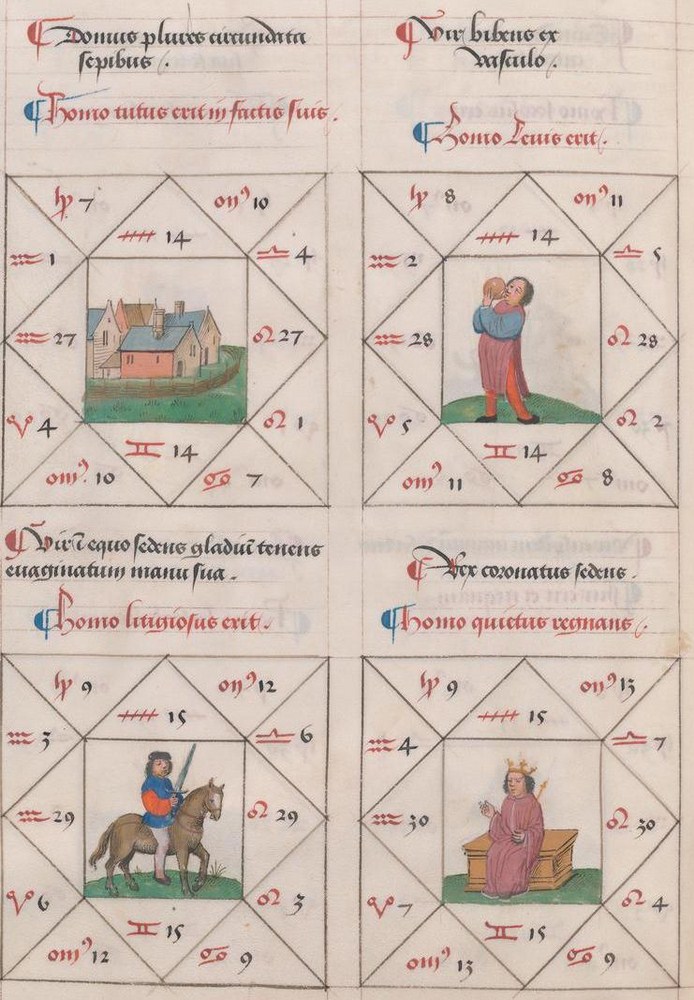 Domus plures circundata
sepibus.
Homo tutus erit in factis suis.
♑ 7
♐ 14
♏ 10
♒ 1
♎ 4
♒ 27
♌ 27
♈ 4
♌ 1
♊ 14
10
♋ 7
Vir bibens ex
vasculo.
Homo Levis erit.
♑ 8
♐ 14
♏ 11
♒ 2
♎ 5
♒ 28
♌ 28
♈ 5
♌ 2
♊ 14
11
♋ 8
Vir ī equo sedens gladiū tenens
evaginatum manu sua.
Homo litigiosus erit.
♑ 9
♐ 15
♏ 12
♒ 3
♎ 6
♒ 29
♌ 29
♈ 6
♌ 3
♊ 15
12
♋ 9
Rex coronatus sedens.
Homo quietus regnans.
♑ 9
♐ 15
♏ 13
♒ 4
♎ 7
♒ 30
♌ 30
♈ 7
♌ 4
♊ 15
13
♋ 9